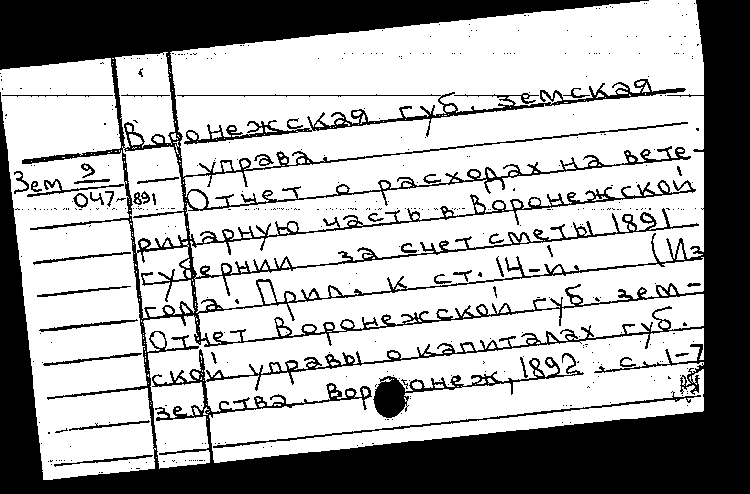 Воронежская губ. земская
управа.
Зем 9
047-891
Отчет о расходах на вете-
ринарную часть в Воронежской
губернии за счет сметы 1891
года. Прил. к ст. 14-й. (Из
Отчет Воронежской губ. зем-
ской управы о капиталах губ.
земства. Воронеж, 1892. с. 1-7